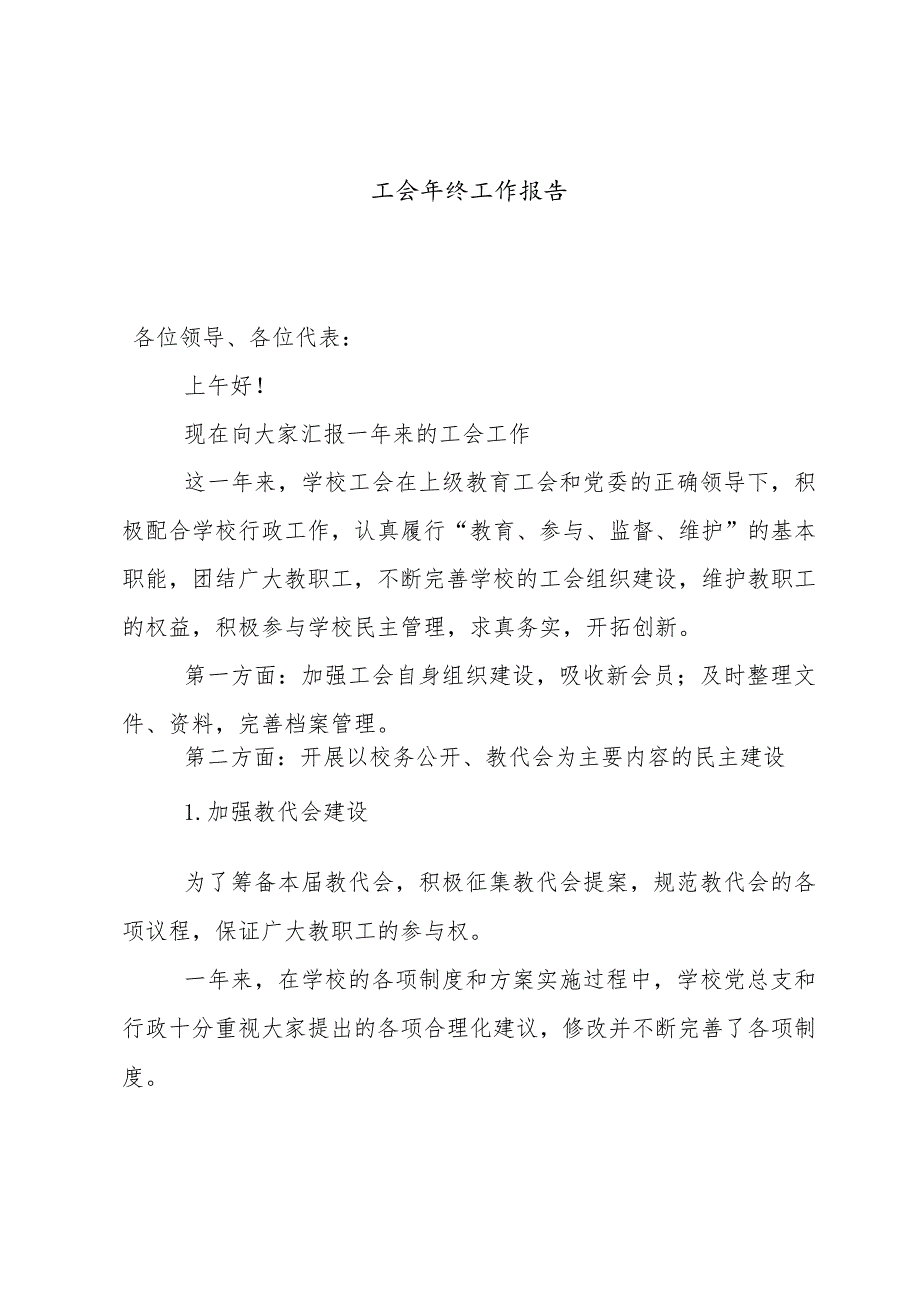 工会年终工作报告
各位领导、各位代表：
上午好！
现在向大家汇报一年来的工会工作
这一年来，学校工会在上级教育工会和党委的正确领导下，积
极配合学校行政工作，认真履行“教育、参与、监督、维护”的基本
职能，团结广大教职工，不断完善学校的工会组织建设，维护教职工
的权益，积极参与学校民主管理，求真务实，开拓创新。
第一方面：加强工会自身组织建设，吸收新会员；及时整理文
件、资料，完善档案管理。
第二方面：开展以校务公开、教代会为主要内容的民主建设
1.加强教代会建设
为了筹备本届教代会，积极征集教代会提案，规范教代会的各
项议程，保证广大教职工的参与权。
一年来，在学校的各项制度和方案实施过程中，学校党总支和
行政十分重视大家提出的各项合理化建议，修改并不断完善了各项制
度。